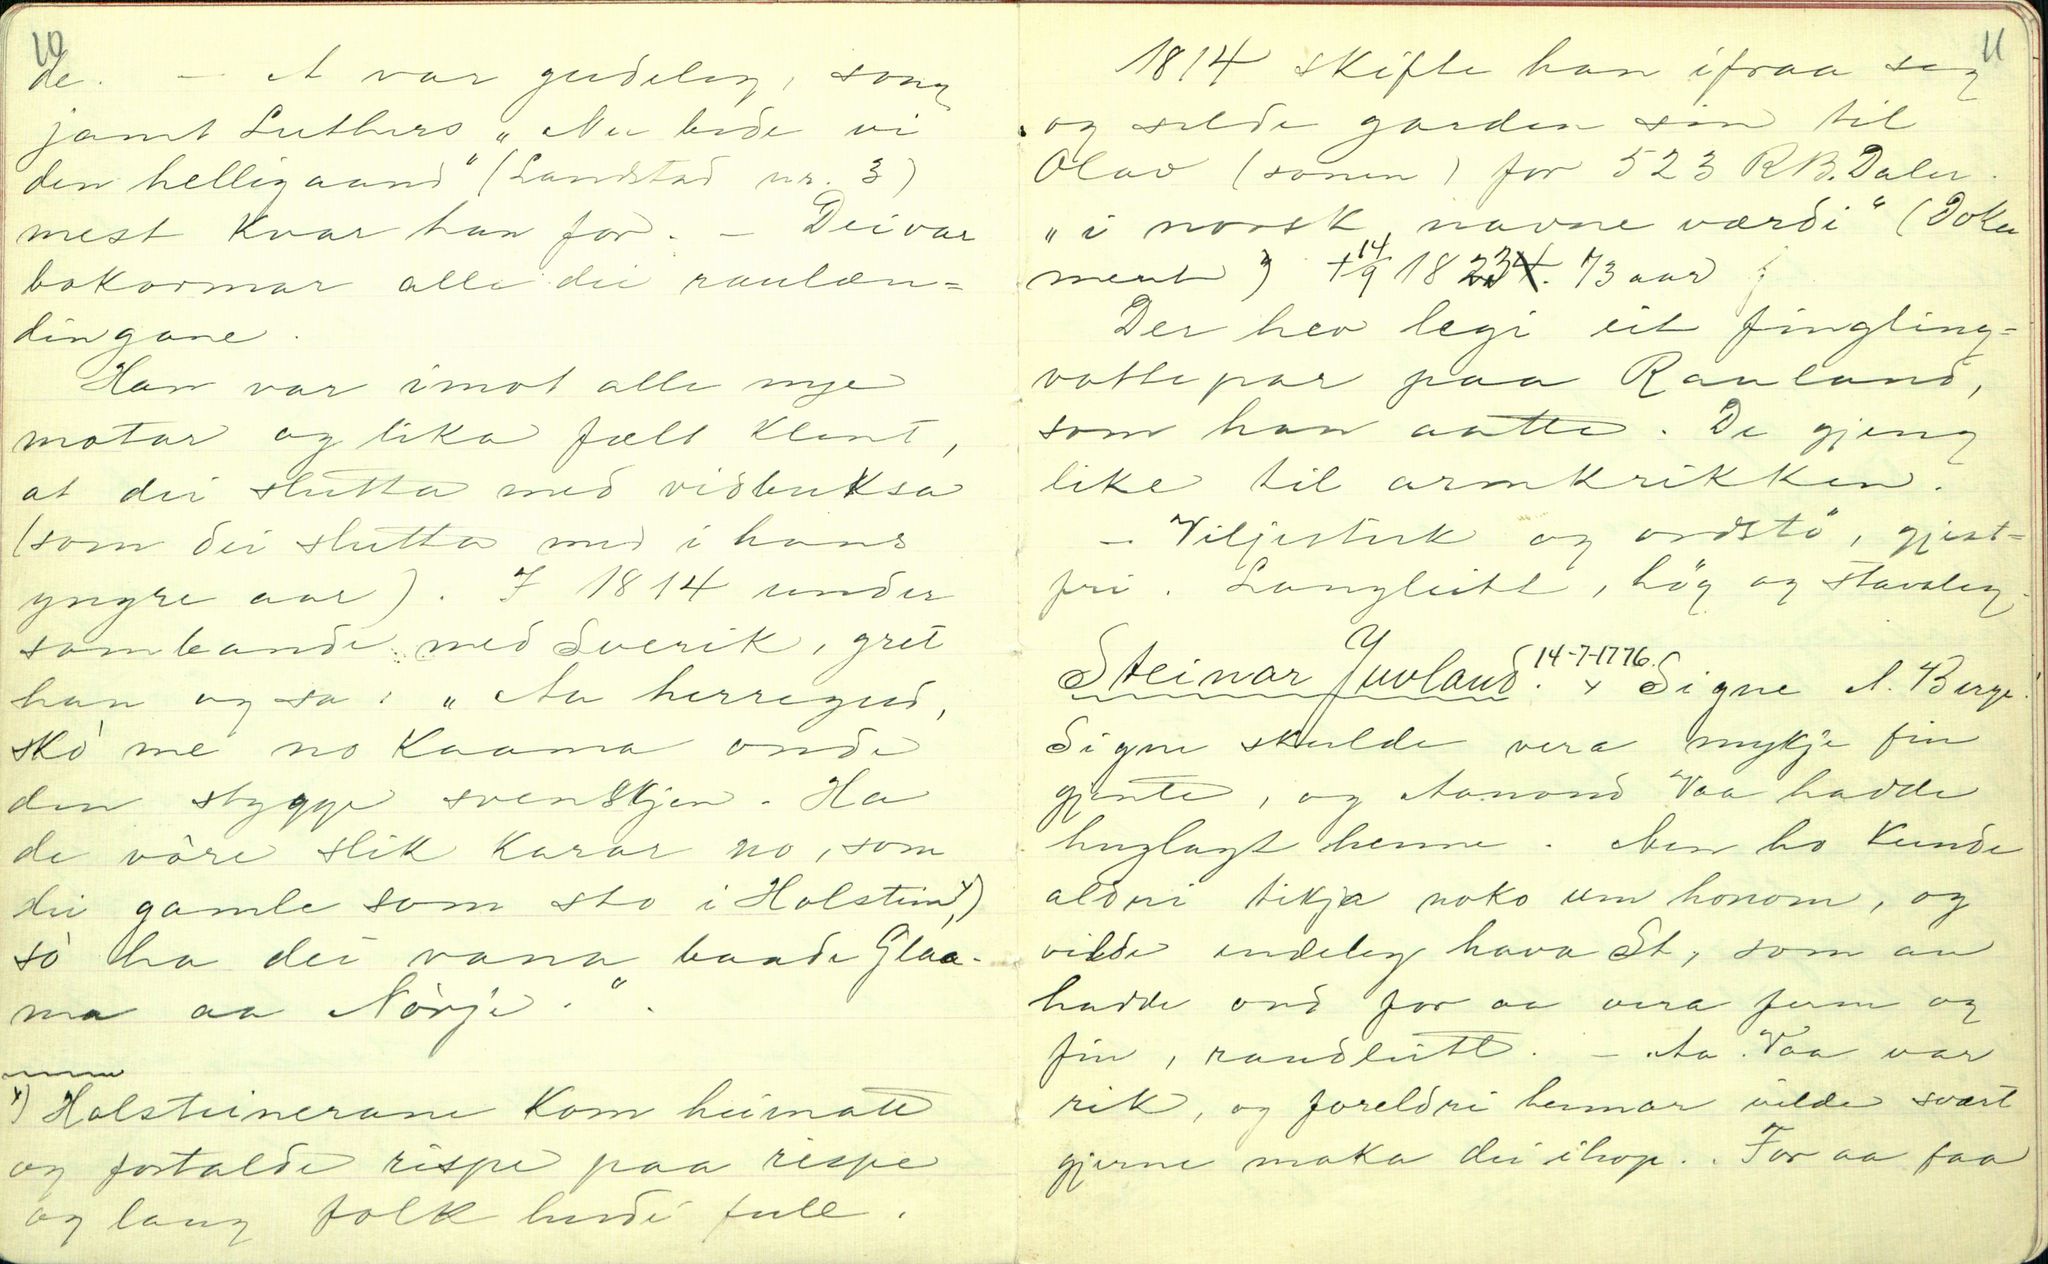 10
de. - A var gudeleg, song
jamt Luthers „Nu bede vi
den helligaand" (Landstad nr. 3)
mest kvar han for. - Dei var
bokormar alle dei raulæn=
dingane.
Han var imot alle nye
motar og lika fælt klent,
at dei slutta med vidbuksa
(som dei slutta med i hans
yngre aar). I 1814 under
sambande med Sverik, gret
han og sa: „Aa herregud,
skò me no kaama onde
den stygge svenskjen. Ha
de vòre slik karar no, som
dei gamle som sto i Holstein x)
sò ha dei vana baade Glaa-
ma aa Nòrje.".
x) Holsteinerane kom heimatt
og fortalde rispe paa rispe
og laug folk hudi full.
11
1814 skifte han ifraa seg
og selde garden sin til
Olav (sonen) for 523 RB.Daler.
„i norsk navne værdi" (Doku
ment) + 14/9 1823. 73 aar
Der hev legi eit fingling=
vottepar paa Rauland,
som han aatte. De gjeng
like til armkrikken.
- Viljesterk og ordstø, gjest=
fri. Langleitt, høg og stavaleg.
Steinar Juvland. 14-7-1776. x Signe A. Berge.
Signe skulde vera mykje fin
gjente, og Aanond Vaa hadde
huglagt henne. Men ho kunde
aldri tikja noko um honom, og
vilde endeleg hava St, som an
hadde ord for aa vera ferm og
fin, raudleitt. - Aa. Vaa var
rik, og foreldri hennar vilde svært
gjerne maka dei ihop.. For aa faa